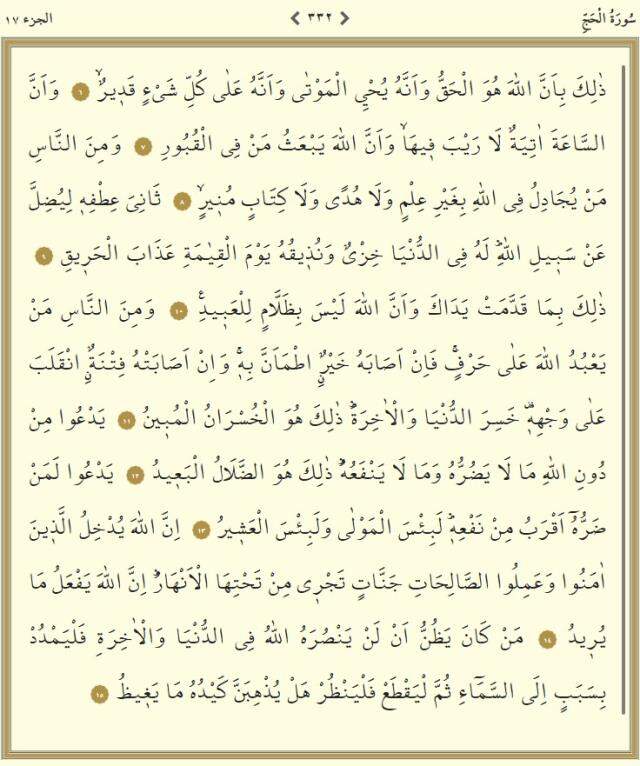 سُورَةُ الْحَجِّ ٣٣٢ الجزء ١٧
ذٰلِكَ بِاَنَّ اللّٰهَ هُوَ الْحَقُّ وَاَنَّهُ يُحْيِ الْمَوْتٰى وَاَنَّهُ عَلٰى كُلِّ شَيْءٍ قَد۪يرٌۙ ٦ وَاَنَّ
السَّاعَةَ اٰتِيَةٌ لَا رَيْبَ ف۪يهَاۙ وَاَنَّ اللّٰهَ يَبْعَثُ مَنْ فِي الْقُبُورِ ٧ وَمِنَ النَّاسِ
مَنْ يُجَادِلُ فِي اللّٰهِ بِغَيْرِ عِلْمٍ وَلَا هُدًى وَلَا كِتَابٍ مُن۪يرٍۙ ٨ ثَانِيَ عِطْفِه۪ لِيُضِلَّ
عَنْ سَب۪يلِ اللّٰهِۜ لَهُ فِي الدُّنْيَا خِزْيٌ وَنُذ۪يقُهُ يَوْمَ الْقِيٰمَةِ عَذَابَ الْحَر۪يقِ ٩
ذٰلِكَ بِمَا قَدَّمَتْ يَدَاكَ وَاَنَّ اللّٰهَ لَيْسَ بِظَلَّامٍ لِلْعَب۪يدِ۟ ١٠ وَمِنَ النَّاسِ مَنْ
يَعْبُدُ اللّٰهَ عَلٰى حَرْفٍۚ فَاِنْ اَصَابَهُ خَيْرٌۨ اطْمَاَنَّ بِه۪ۚ وَاِنْ اَصَابَتْهُ فِتْنَةٌۨ انْقَلَبَ
عَلٰى وَجْهِه۪۠ خَسِرَ الدُّنْيَا وَالْاٰخِرَةَۜ ذٰلِكَ هُوَ الْخُسْرَانُ الْمُب۪ينُ ١١ يَدْعُوا مِنْ
دُونِ اللّٰهِ مَا لَا يَضُرُّهُ وَمَا لَا يَنْفَعُهُۜ ذٰلِكَ هُوَ الضَّلَالُ الْبَع۪يدُ ١٢ يَدْعُوا لَمَنْ
ضَرُّهُٓ اَقْرَبُ مِنْ نَفْعِه۪ۜ لَبِئْسَ الْمَوْلٰى وَلَبِئْسَ الْعَش۪يرُ ١٣ اِنَّ اللّٰهَ يُدْخِلُ الَّذ۪ينَ
اٰمَنُوا وَعَمِلُوا الصَّالِحَاتِ جَنَّاتٍ تَجْر۪ي مِنْ تَحْتِهَا الْاَنْهَارُۜ اِنَّ اللّٰهَ يَفْعَلُ مَا
يُر۪يدُ ١٤ مَنْ كَانَ يَظُنُّ اَنْ لَنْ يَنْصُرَهُ اللّٰهُ فِي الدُّنْيَا وَالْاٰخِرَةِ فَلْيَمْدُدْ
بِسَبَبٍ اِلَى السَّمَٓاءِ ثُمَّ لْيَقْطَعْ فَلْيَنْظُرْ هَلْ يُذْهِبَنَّ كَيْدُهُ مَا يَغ۪يظُ ١٥